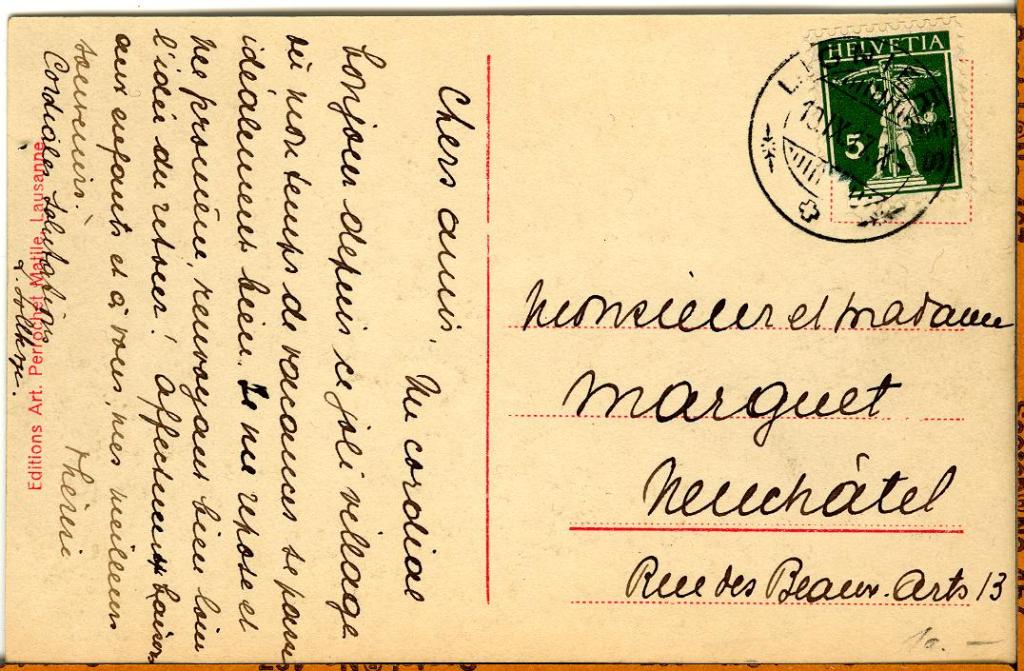 Chers amis,
Un cordial
bonjour depuis ce joli village
où mon temps de vacances se passe
idéalement bien. Je me repose et
me promène, renvoyant bien loin
l'idée du retour! Affectueux baisers
aux enfants et à vous, mes meilleurs
souvenirs.
Thérèse
Cordiales salutations
Editions Art. Perrochet Matile, Lausanne
HELVETIA
5
LIGNIERES
Monsieur et Madame
Marguet
Neuchâtel
Rue des Beaux-Arts 13
10.–